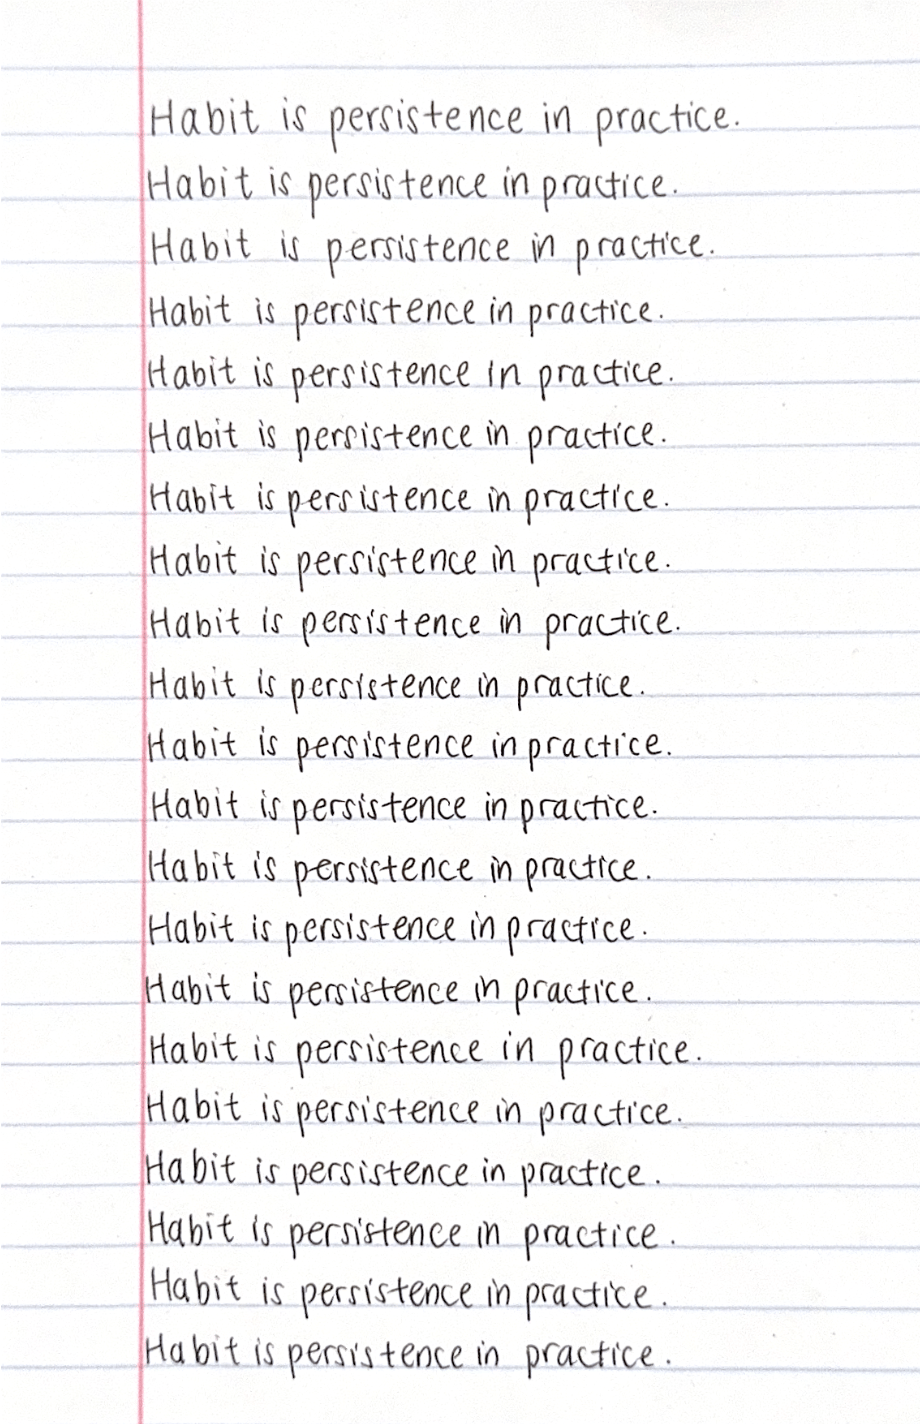 Habit is persistence in practice.
Habit is persistence in practice.
Habit is persistence in practice.
Habit is persistence in practice.
Habit is persistence in practice.
Habit is persistence in practice.
Habit is persistence in practice.
Habit is persistence in practice.
Habit is persistence in practice.
Habit is persistence in practice.
Habit is persistence in practice.
Habit is persistence in practice.
Habit is persistence in practice.
Habit is persistence in practice.
Habit is persistence in practice.
Habit is persistence in practice.
Habit is persistence in practice.
Habit is persistence in practice.
Habit is persistence in practice.
Habit is persistence in practice.
Habit is persistence in practice.